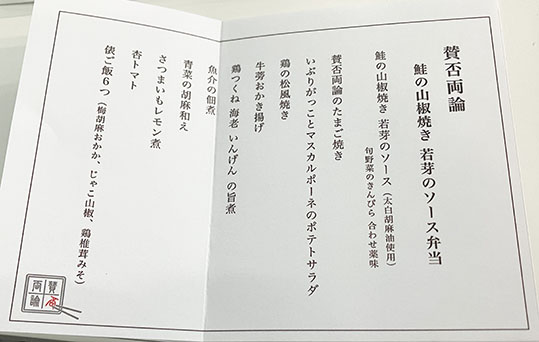 賛否両論
鮭の山椒焼き 若芽のソース弁当
鮭の山椒焼き 若芽のソース（太白胡麻油使用）
旬野菜のきんぴら 合わせ薬味
賛否両論のたまご焼き
いぶりがっことマスカルポーネのポテトサラダ
鶏の松風焼き
牛蒡おかき揚げ
鶏つくね 海老 いんげん の旨煮
魚介の佃煮
青菜の胡麻和え
さつまいもレモン煮
杏トマト
俵ご飯６つ（梅胡麻おかか、じゃこ山椒、鶏椎茸みそ）
賛否
両論